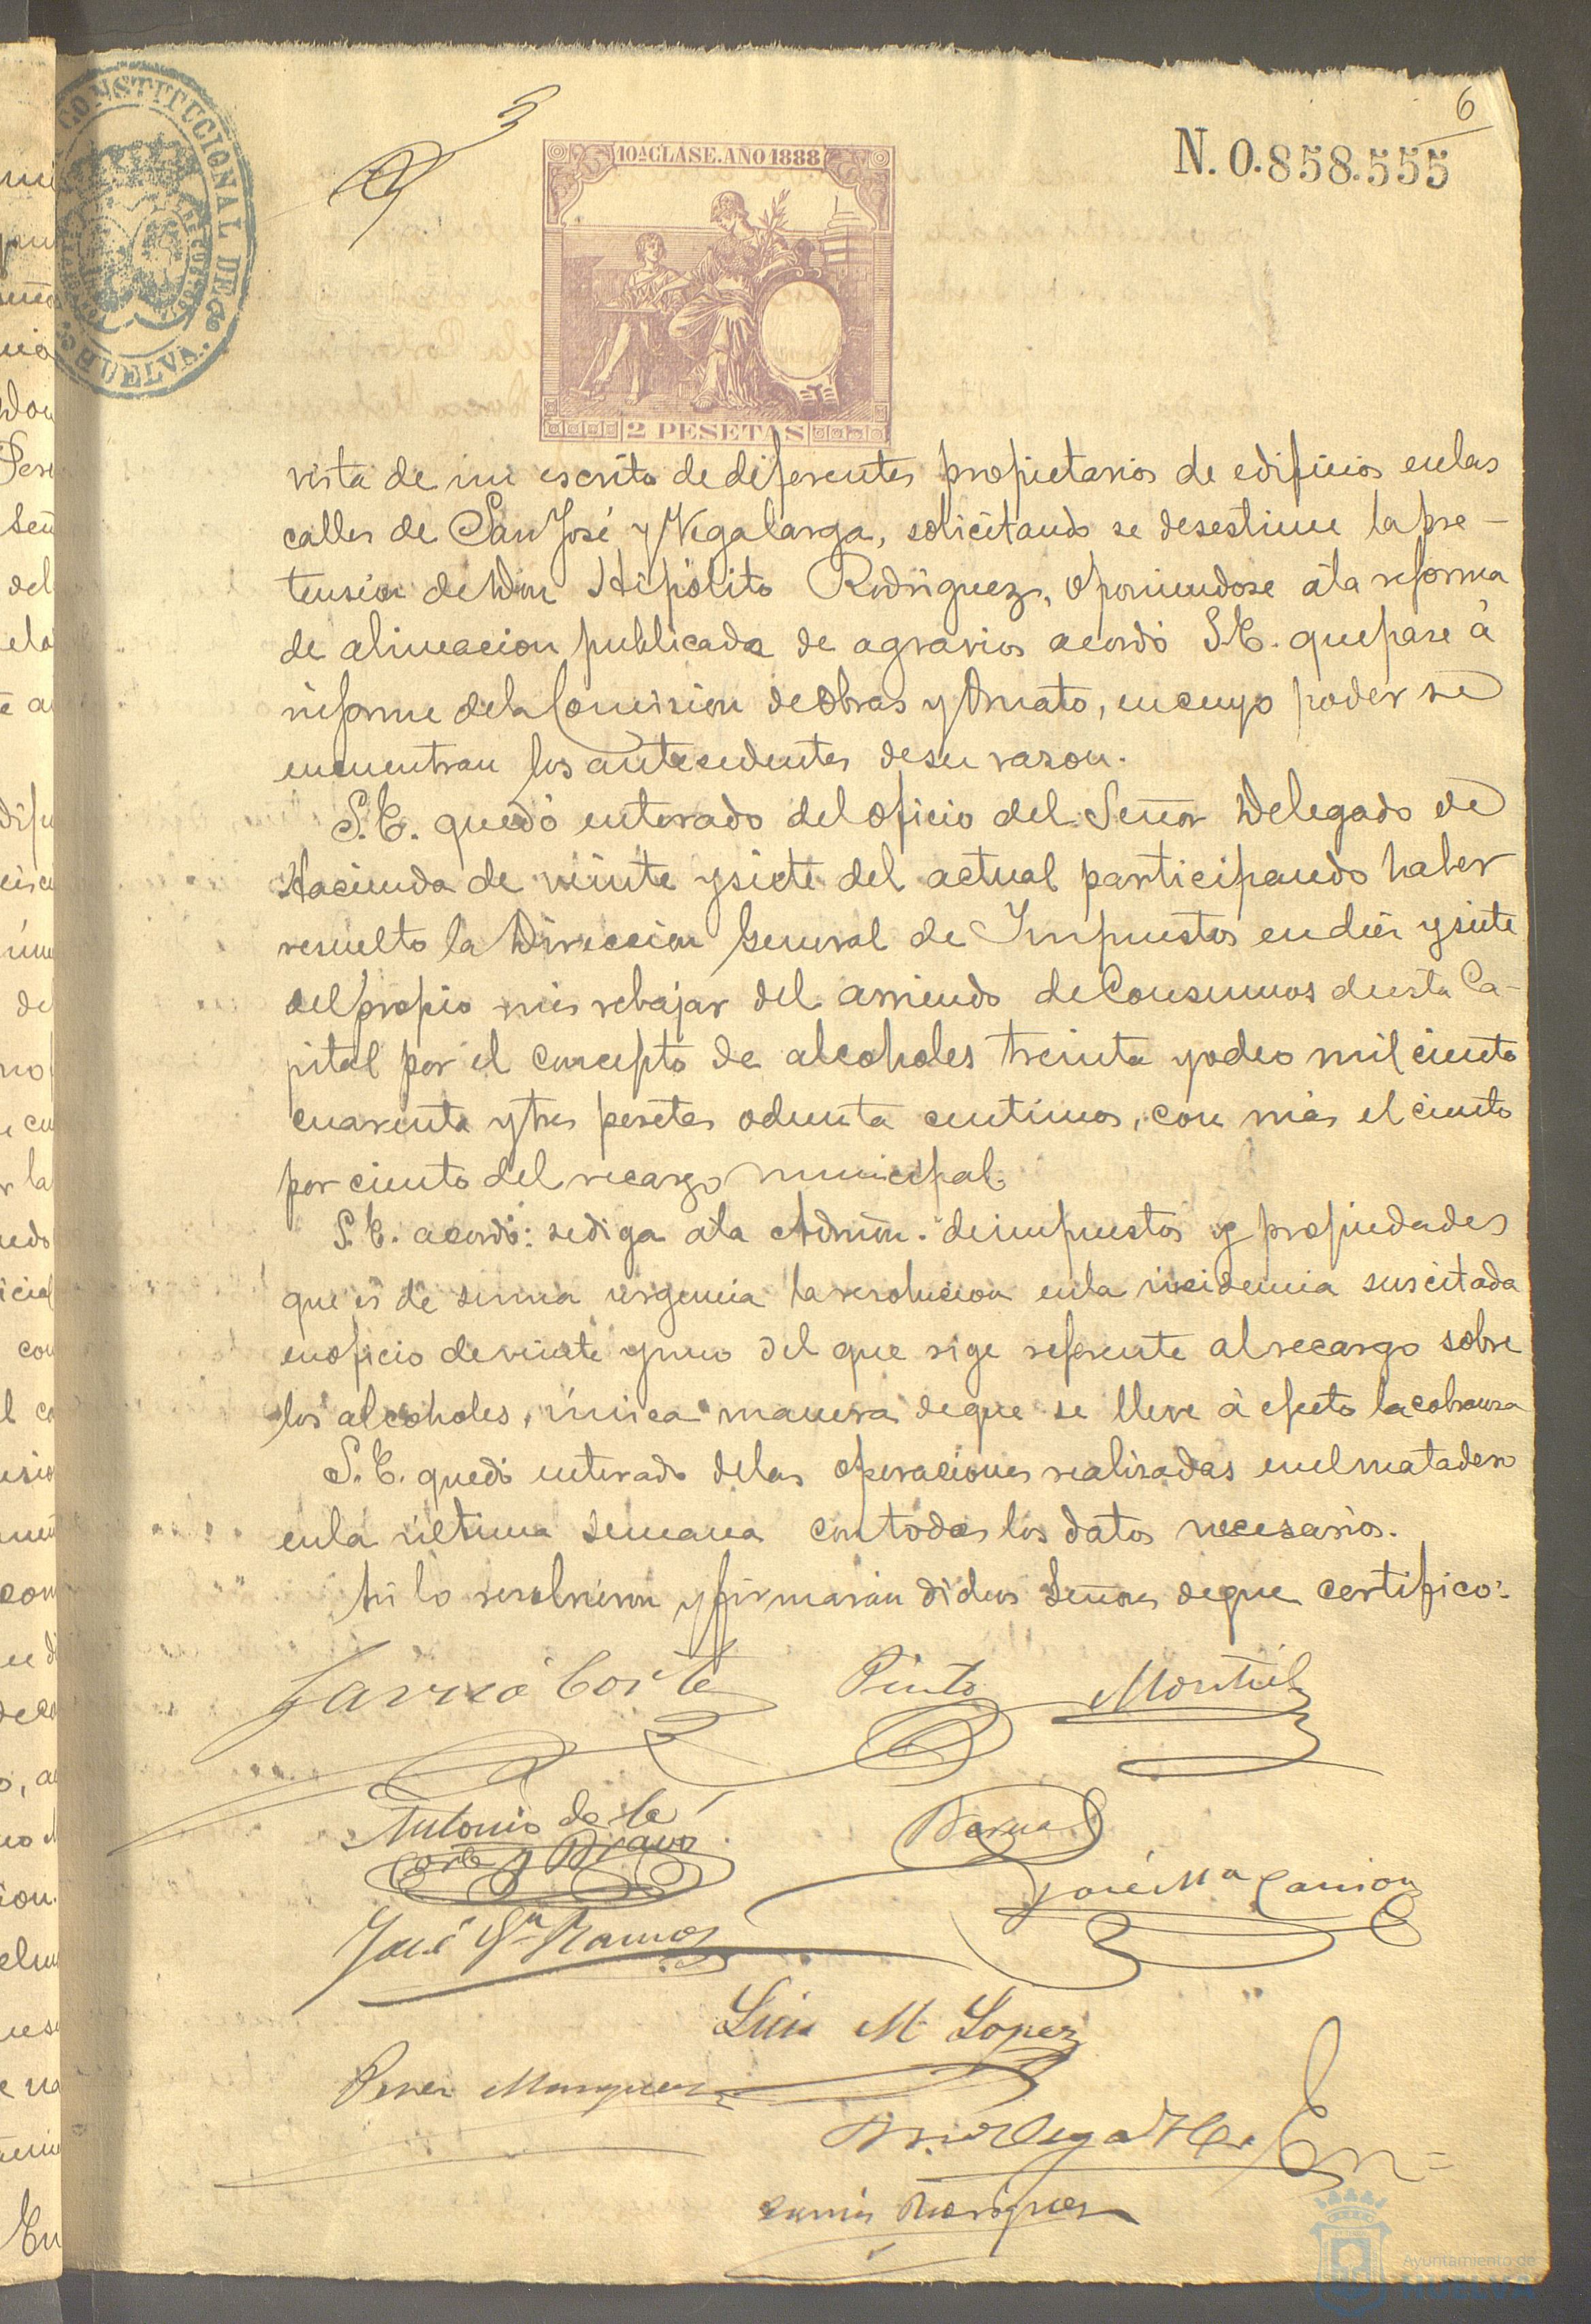 6
3
N. 0.858.555
CONSTITUCIONAL DE
HUELVA.
10ª CLASE. AÑO 1888
2 PESETAS
vista de un escrito de diferentes propietarios de edificios en las
calles de San José y Vegalarga, solicitando se desestime la pre-
tension de Don Hipólito Rodriguez, oponiendose á la reforma
de alineacion publicada de agravios acordó S.E. que pase á
informe de la Comision de Obras y Ornato, en cuyo poder se
encuentran los antecedentes de su razon.
S.E. quedó enterado del oficio del Señor Delegado de
Hacienda de veinte y siete del actual participando haber
resuelto la Direccion General de Impuestos en diez y siete
del propio mes rebajar del arriendo de Consumos de esta Ca-
pital por el concepto de alcoholes treinta y ocho mil ciento
cuarenta y tres pesetas ochenta centimos, con más el ciento
por ciento del recargo municipal.
S.E. acordó: se diga á la Admón. de impuestos y propiedades
que es de suma urgencia la resolucion en la incidencia suscitada
en oficio de veinte y uno del que rige referente al recargo sobre
los alcoholes, única manera de que se lleve á efecto la cobranza
S.E. quedó enterado de las operaciones realizadas en el matadero
en la última semana con todos los datos necesarios.
Así lo resolvieron y firmarán dichos Señores de que certifico:
Garcia Corte Pinto Montiel
Antonio de la
Corte y Bravo
Bernal
José Mª Carrion
José Gª Ramos
Luis M. Lopez
Perez Marquez
En=
Marquez
Ayuntamiento de
HUELVA